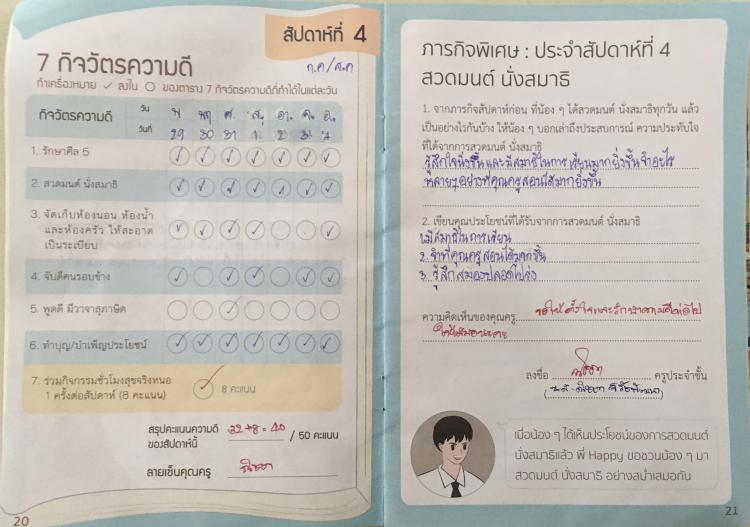 สัปดาห์ที่ 4
7 กิจวัตรความดี
ก.ค/ส.ค
ทำเครื่องหมาย ✓ ลงใน ○ ของตาราง 7 กิจวัตรความดีที่ทำได้ในแต่ละวัน
กิจวัตรความดี วัน พ พฤ ศ ส. อา. จ. อ.
วันที่ 29 30 31 1 2 3 4
1. รักษาศีล 5
2. สวดมนต์ นั่งสมาธิ
3. จัดเก็บห้องนอน ห้องน้ำ
และห้องครัว ให้สะอาด
เป็นระเบียบ
4. จับดีคนรอบข้าง
5. พูดดี มีวาจาสุภาษิต
6. ทำบุญ/บำเพ็ญประโยชน์
7. ร่วมกิจกรรมชั่วโมงสุขจริงหนอ
1 ครั้งต่อสัปดาห์ (8 คะแนน)
8 คะแนน
สรุปคะแนนความดี
ของสัปดาห์นี้ 32+8=40 / 50 คะแนน
ลายเซ็นคุณครู
20
ภารกิจพิเศษ : ประจำสัปดาห์ที่ 4
สวดมนต์ นั่งสมาธิ
1. จากภารกิจสัปดาห์ก่อน ที่น้อง ๆ ได้สวดมนต์ นั่งสมาธิทุกวัน แล้ว
เป็นอย่างไรกันบ้าง ให้น้อง ๆ บอกเล่าถึงประสบการณ์ ความประทับใจ
ที่ได้จากการสวดมนต์ นั่งสมาธิ
รู้สึกใจนิ่งขึ้นและมีสมาธิในการเรียนมากยิ่งขึ้นจำอะไร
หลายๆอย่างที่คุณครูสอนได้มากยิ่งขึ้น
2. เขียนคุณประโยชน์ที่ได้รับจากการสวดมนต์ นั่งสมาธิ
1.มีสมาธิในการเรียน
2. จำที่คุณครูสอนได้มากขึ้น
3. รู้สึกสมองปลอดโปร่ง
ความคิดเห็นของคุณครู
ลงชื่อ ครูประจำชั้น
เมื่อน้อง ๆ ได้เห็นประโยชน์ของการสวดมนต์
นั่งสมาธิแล้ว พี่ Happy ขอชวนน้อง ๆ มา
สวดมนต์ นั่งสมาธิ อย่างสม่ำเสมอกัน
21